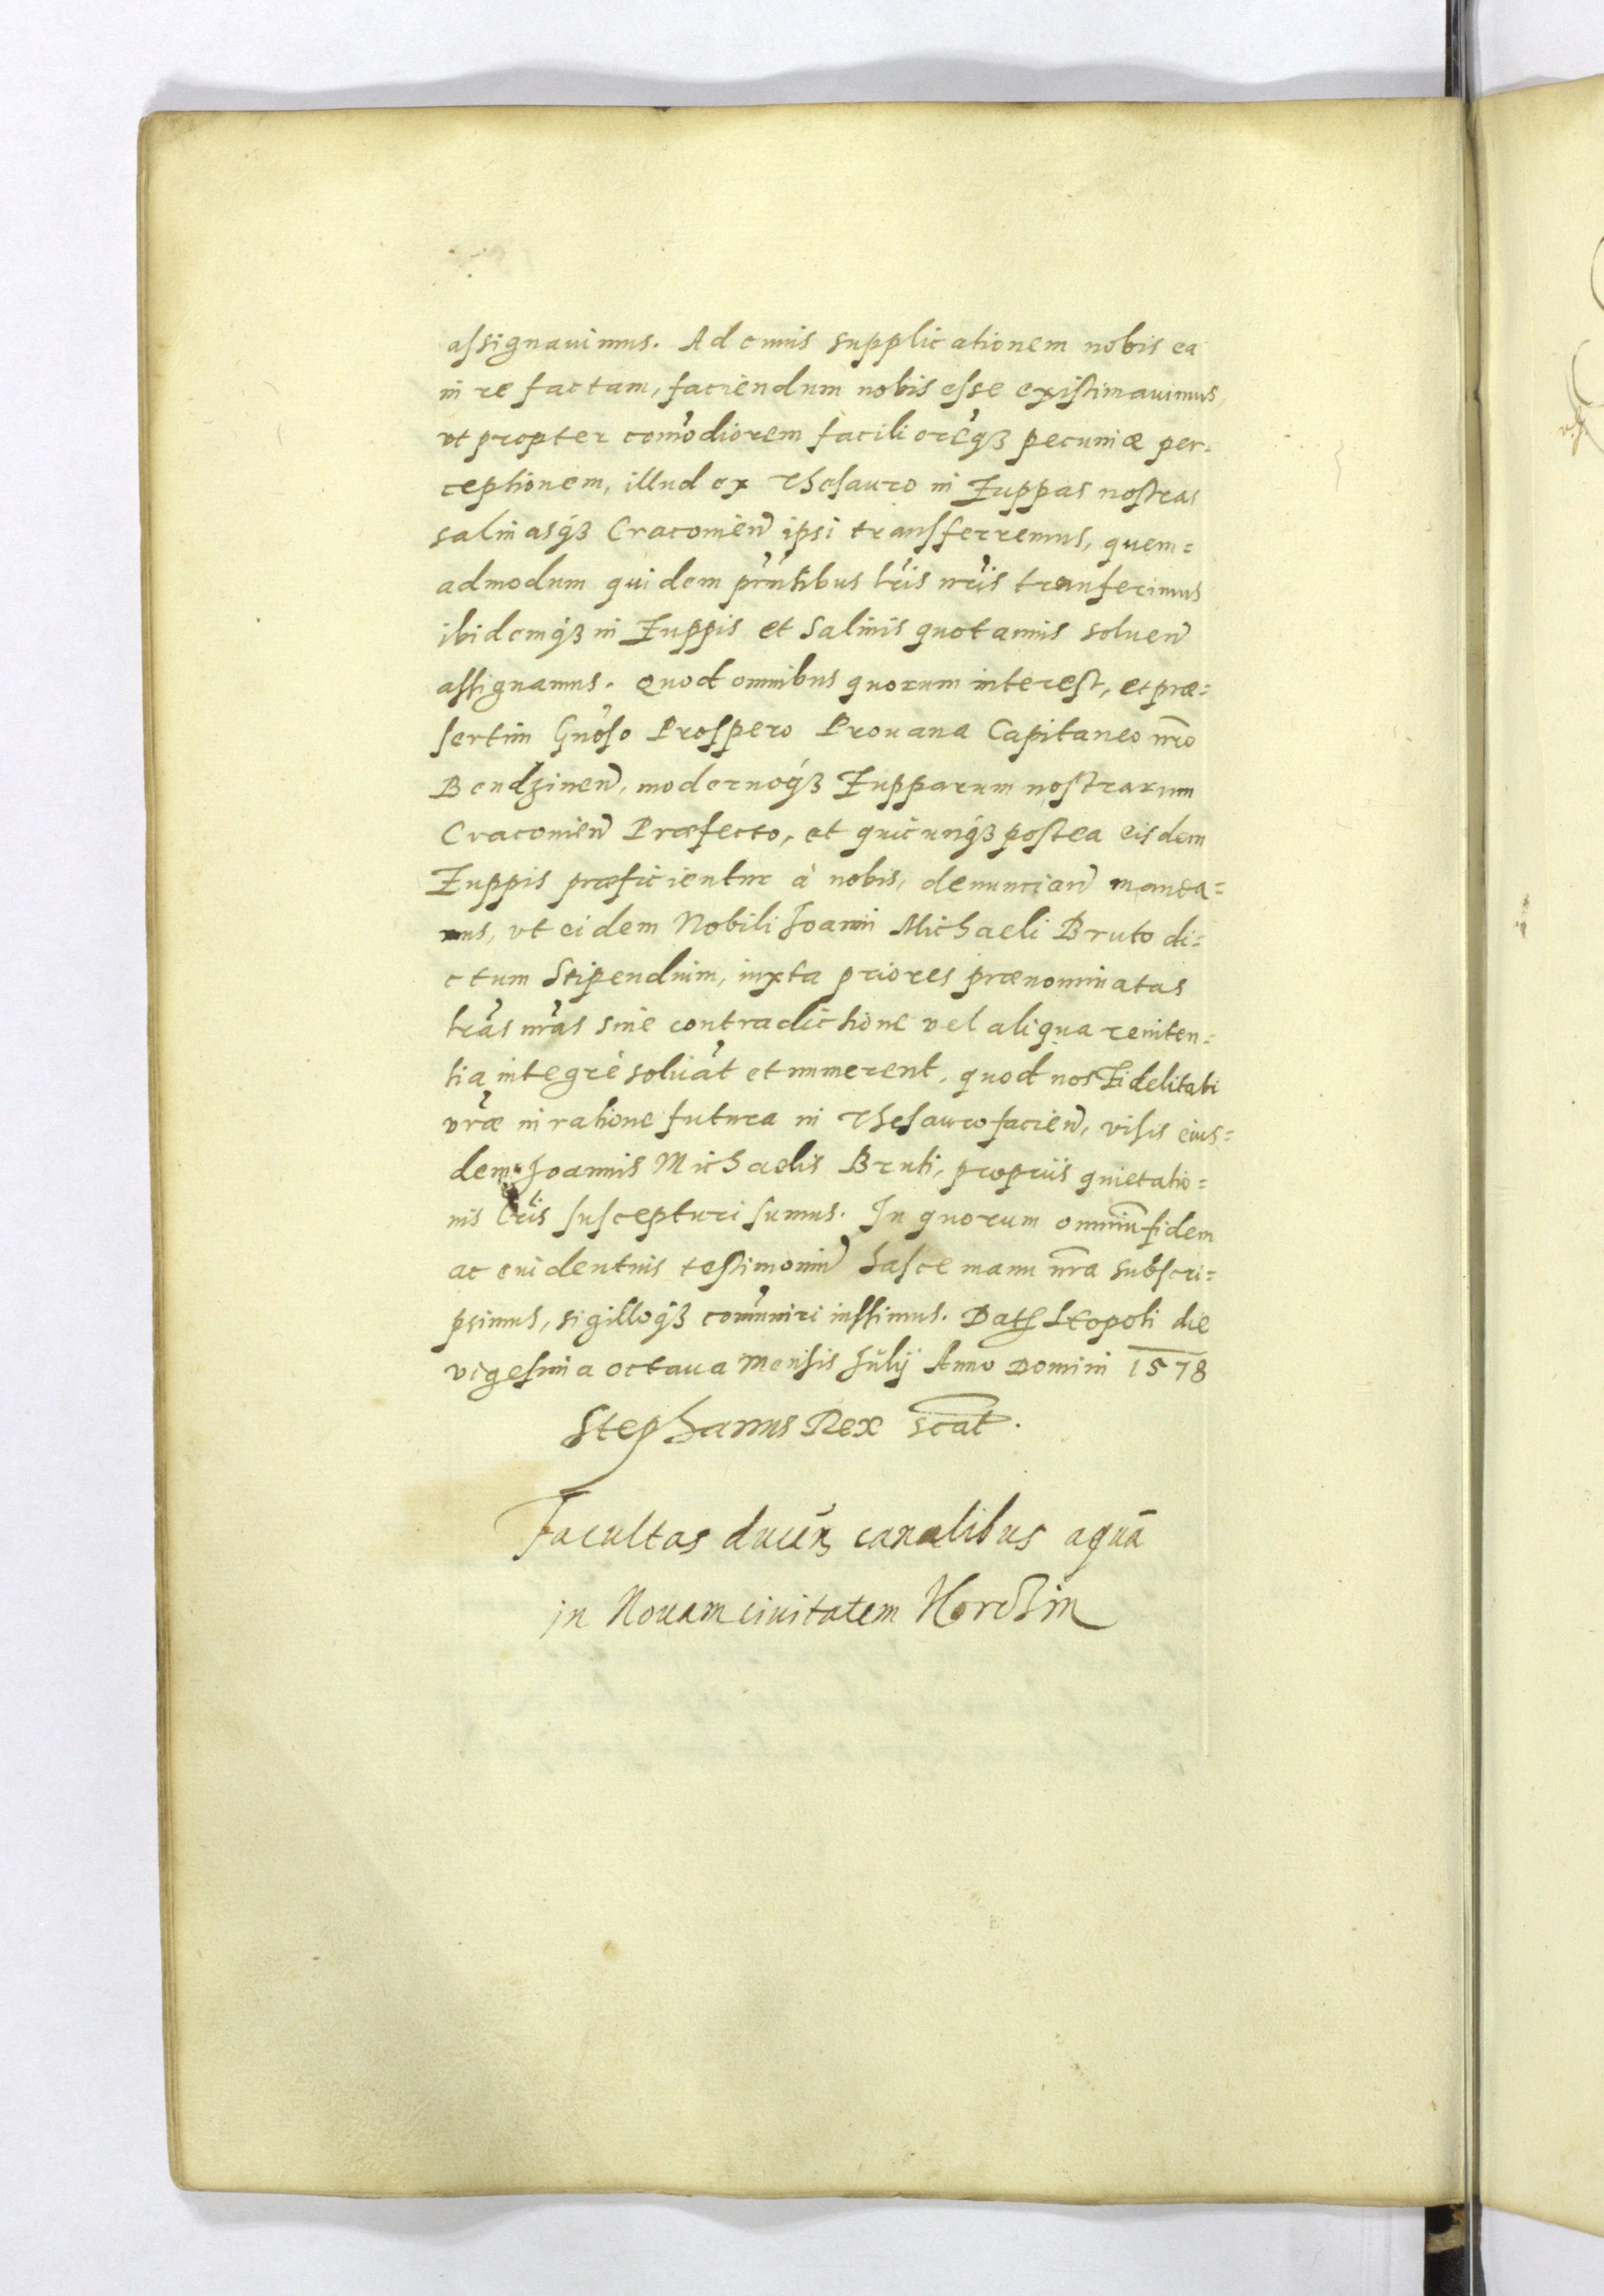 assignauimus. Ad cuius supplicationem nobis ea
in re factam, faciendum nobis esse existimauimus,
vt propter com̃odiorem facilioreq́ꝫ pecuniæ per=
ceptionem, illud ex Thesauro in Zuppas nostras
salinasq́ꝫ Cracouieñ ipsi transferremus, quem=
admodum quidem pñtibus lr̃is nr̃is tranferimus
ibidemq́ꝫ in Zuppis et Salinis quotannis solueñ
assignamus. Quod omnibus quorum interest, et præ=
sertim Gñoso Prospero Prouana Capitaneo nr̃o
Bendzineñ, modernoq́ꝫ Zupparum nostrarum
Cracouieñ Præfecto, et quicunq́ꝫ postea eisdem
Zuppis præficientur à nobis, denunciañ manda=
mus, vt eidem Nobili Joanni Michaeli Bruto di=
ctum Stipendium, iuxta priores prænominatas
lr̃as nr̃as sine contradictione vel aliqua reniten=
tia integrè soluãt et numerent, quod nos Fidelitati
vr̃æ in ratione futura in Thesauro facieñ, visis eius=
dem Joannis Michaelis Bruti, propriis quietatio=
nis lr̃is suscepturi sumus. In quorum omniũ fidem
ac euidentius testimoniũ hasce manu nr̃a subscri=
psimus, sigilloq́ꝫ com̃uniri iussimus. Datꝭ Leopoli die
vigesima octaua mensis Julij Anno Domini 1578
Stephanus Rex scat̃.
Facultas duceñ canalibus aquã
in Nouam ciuitatem Korchin